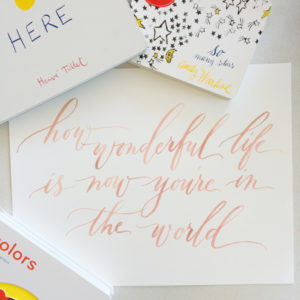 HERE
Hervé Tullet
so
many stars
Andy Warhol
how
wonderful life
is now you're in
the world
colors